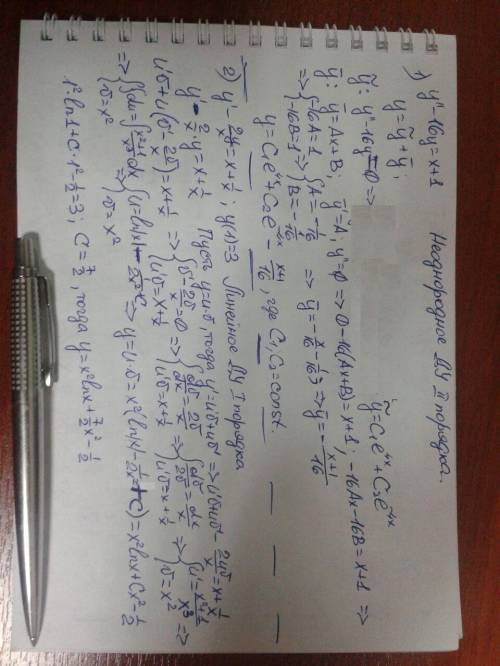 Неоднородное ДУ II порядка.
1) y'' - 16y = x + 1
y = ỹ + ȳ;
ỹ: y'' - 16y = 0 => ỹ = C₁e^{4x} + C₂e^{-4x}
ȳ: ȳ = Ax + B; ȳ' = A; ȳ'' = 0 => 0 - 16(Ax + B) = x + 1; -16Ax - 16B = x + 1 =>
=> {-16A = 1, -16B = 1 => {A = -1/16, B = -1/16 => ȳ = -x/16 - 1/16 => ȳ = -(x+1)/16
y = C₁e^{4x} + C₂e^{-4x} - (x+1)/16, где C₁, C₂ = const.
2) y' - 2y/x = x + 1/x; y(1) = 3 Линейное ДУ I порядка
y' - 2/x y = x + 1/x Пусть y = u·v, тогда y' = u'v + uv' => u'v + uv' - 2uv/x = x + 1/x
u'v + u(v' - 2v/x) = x + 1/x => {v' - 2v/x = 0, u'v = x + 1/x => {dv/dx = 2v/x, u'v = x + 1/x => {dv/2v = dx/x, u'v = x + 1/x => {u' = (x²+1)/x³, v = x² =>
=> {∫du = ∫(x²+1)/x³ dx, v = x² => {u = ln|x| - 1/2x² + C, v = x² => y = u·v = x²(ln|x| - 1/2x² + C) = x² ln x + Cx² - 1/2
1²·ln1 + C·1² - 1/2 = 3; C = 7/2, тогда y = x² ln x + 7/2 x² - 1/2